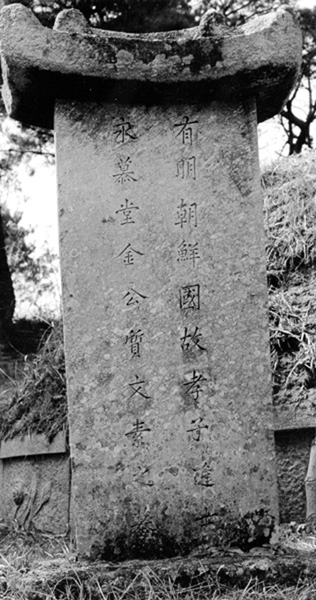 有明朝鮮國故孝子進士
永慕堂金公質文素之墓